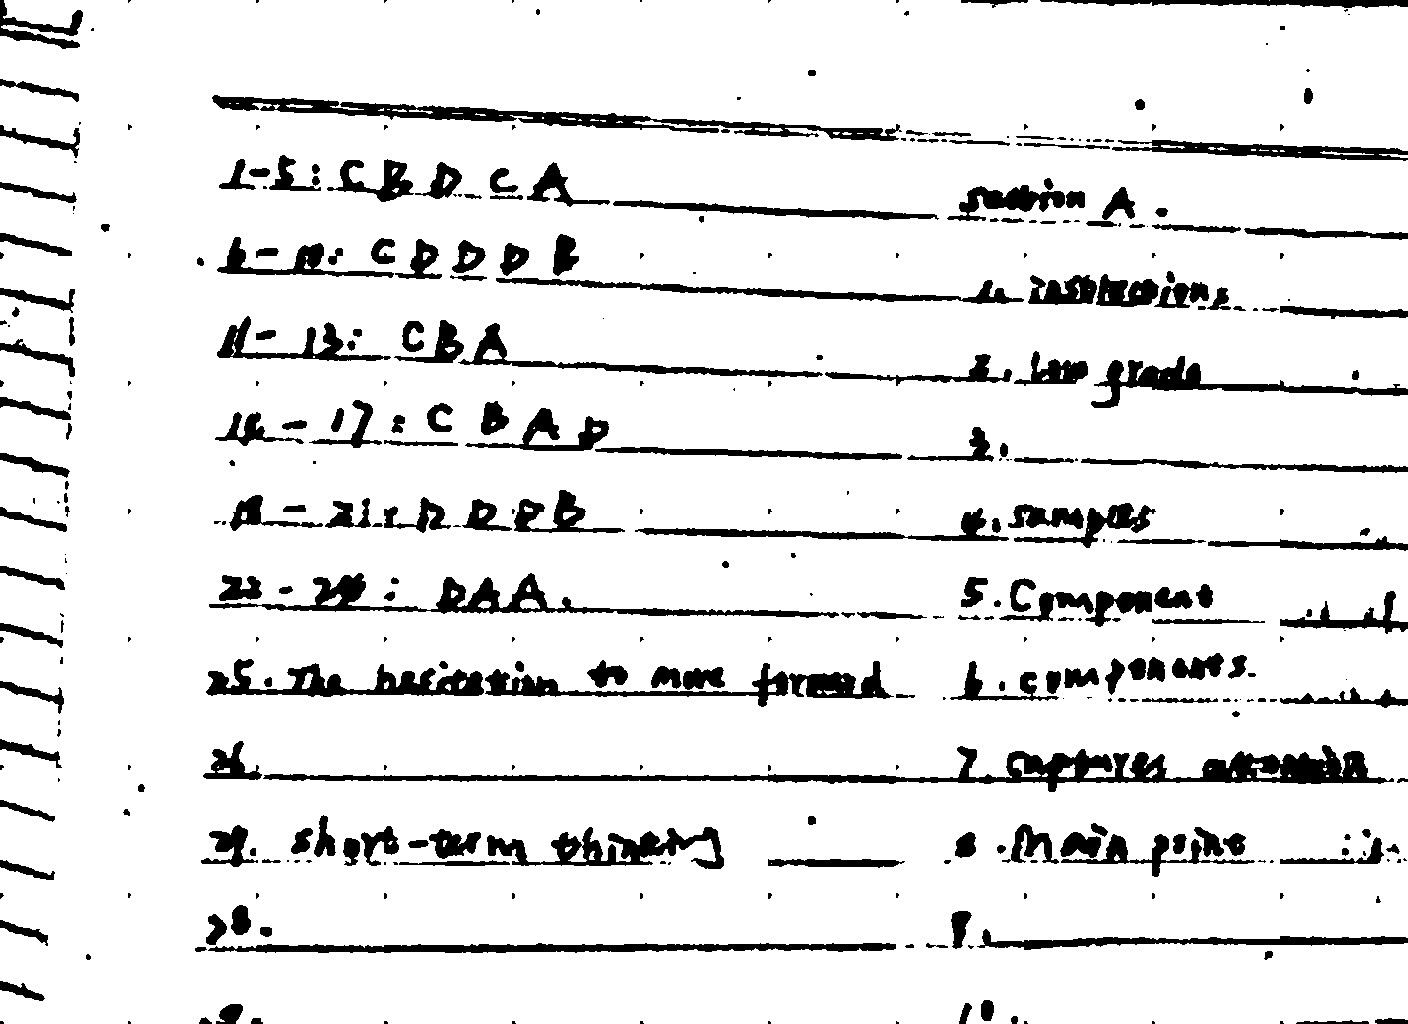 1-5: C B D C A
6-10: C D D D B
11-13: C B A
14-17: C B A D
18-21: D D D B
22-24: D A A.
25. The hesitation to move forward
26.
27. short-term thinking
28.
29.
section A.
1. instructions
2. low grade
3.
4. samples
5. Component
6. components.
7. captures
8. Main point
9.
10.